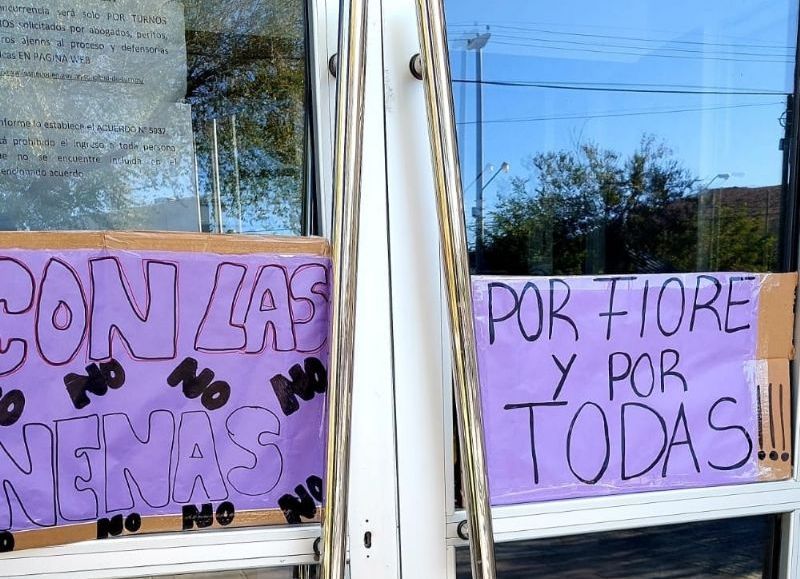 concurrencia será solo POR TURNOS
solicitados por abogados, peritos,
ajenos al proceso y defensorías
EN PAGINA WEB
conforme lo establece el ACUERDO N° 5937
prohibido el ingreso a toda persona
que no se encuentre incluida en el
mencionado acuerdo
CON LAS
NO NO NO NO
NENAS
NO NO NO
POR FIORE
Y POR
TODAS!!!